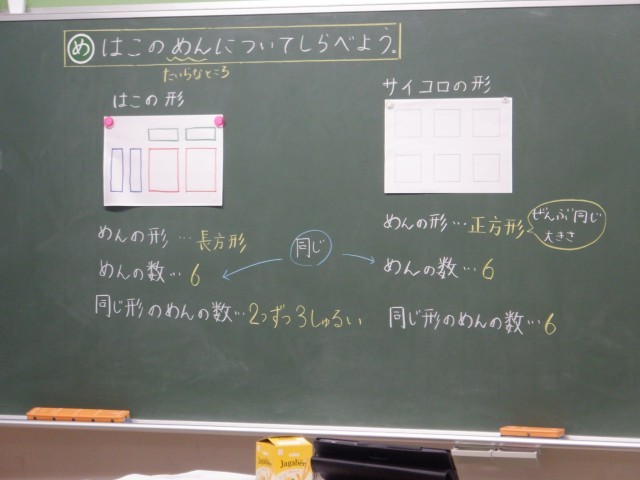 め はこのめんについてしらべよう。
たいらなところ
はこの形
サイコロの形
めんの形…長方形
めんの数…6
同じ形のめんの数…2つずつ3しゅるい
同じ
めんの形…正方形
ぜんぶ同じ
大きさ
めんの数…6
同じ形のめんの数…6
Jagabee